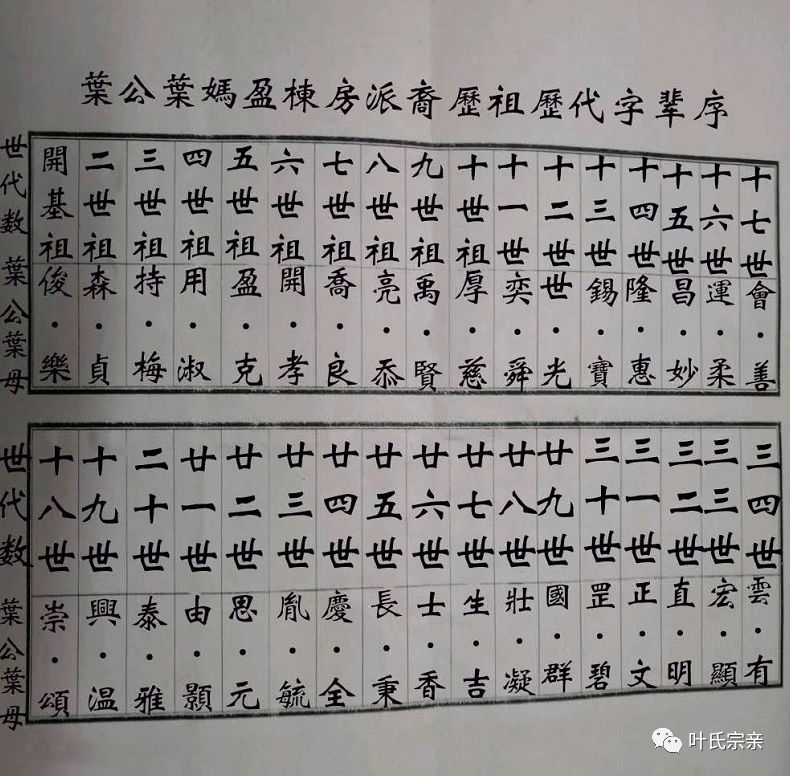 葉公葉媽盈棟房派裔歷祖歷代字輩序
世代数 葉公葉母
開基祖 俊·樂
二世祖 森·貞
三世祖 持·梅
四世祖 用·淑
五世祖 盈·克
六世祖 開·孝
七世祖 喬·良
八世祖 亮·忝
九世祖 禹·賢
十世祖 厚·慈
十一世 奕·舜
十二世 世·光
十三世 錫·寶
十四世 隆·惠
十五世 昌·妙
十六世 運·柔
十七世 會·善
世代数 葉公葉母
十八世 崇·頌
十九世 興·温
二十世 泰·雅
廿一世 由·顥
廿二世 思·元
廿三世 胤·毓
廿四世 慶·全
廿五世 長·秉
廿六世 士·香
廿七世 生·吉
廿八世 壯·凝
廿九世 國·群
三十世 罡·碧
三一世 正·文
三二世 直·明
三三世 宏·顯
三四世 雲·有
叶氏宗亲